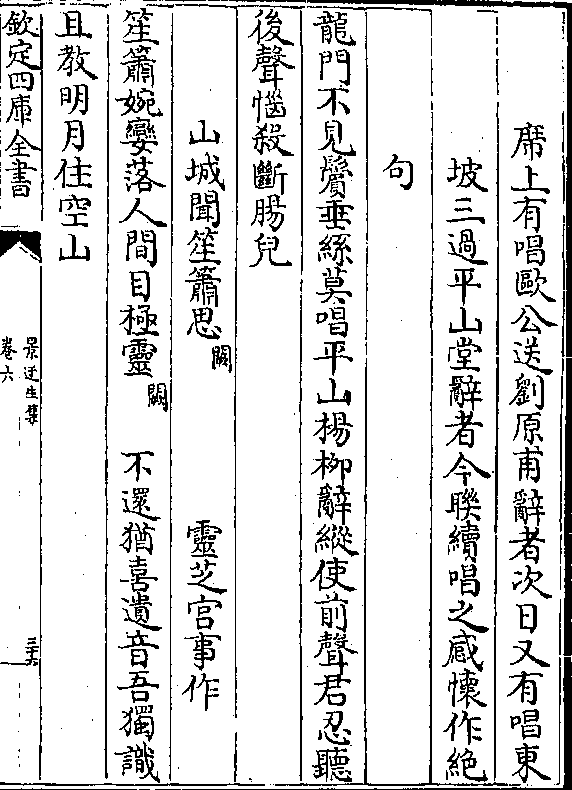 席上有唱歐公送劉原甫辭者次日又有唱東
坡三過平山堂辭者今聯續唱之感懷作絶
句
龍門不見鬢垂絲莫唱平山楊柳辭縱使前聲君忍聽
後聲惱殺斷腸兒
山城聞笙簫思闕 靈芝宫事作
笙簫婉孌落人間目極靈闕 不還猶喜遺音吾獨識
且教明月住空山
欽定四庫全書
景迂生集
卷六
三十六